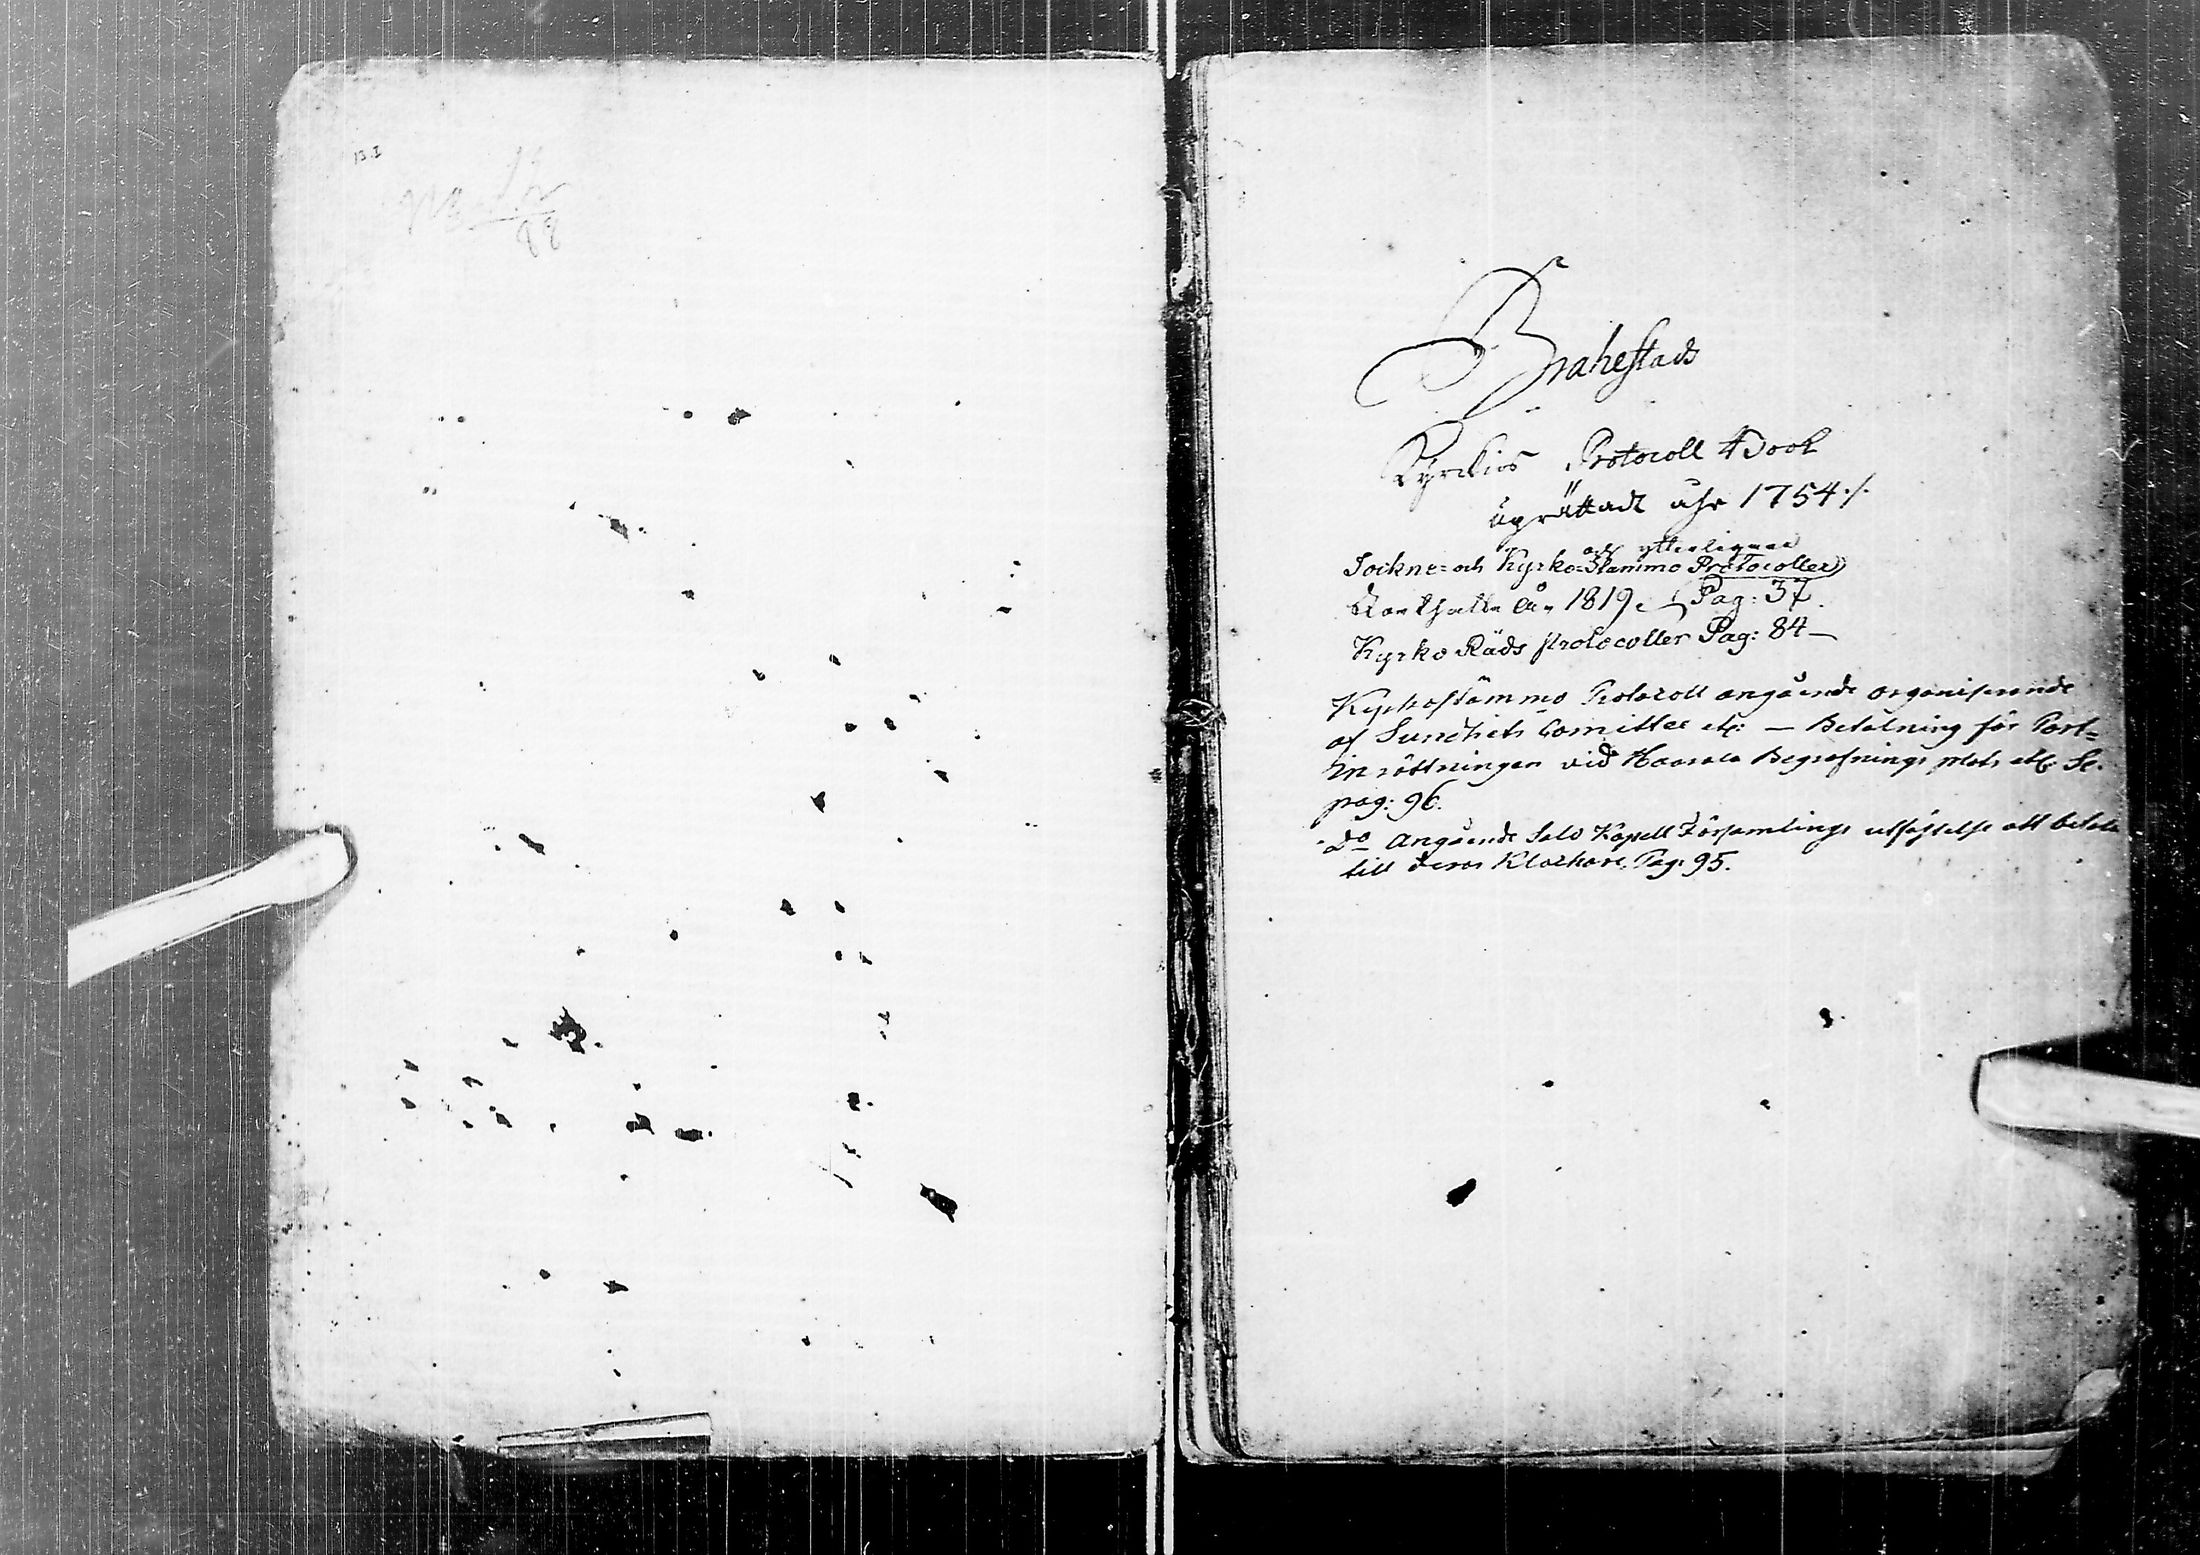 13.I
No 12
88
Brahestads
Kyrckios Protocoll Book
uprättadt ahr 1754 ./.
och ytterligare
Sockne= och Kyrko=Stämmo Protocoller
år 1819. Pag: 37.
Kyrko Råds Protocoller Pag: 84 —
Kyrkostämmo Protocoll angående organiserande
af Sundhets Comittee etc: — Betalning för Port=
inrättningen vid Haarala Begrafnings plats etc. Se.
pag: 96.
Do Angående Salo Kapell Församlings utfästelse att betala
till deras Klockare. Pag: 95.